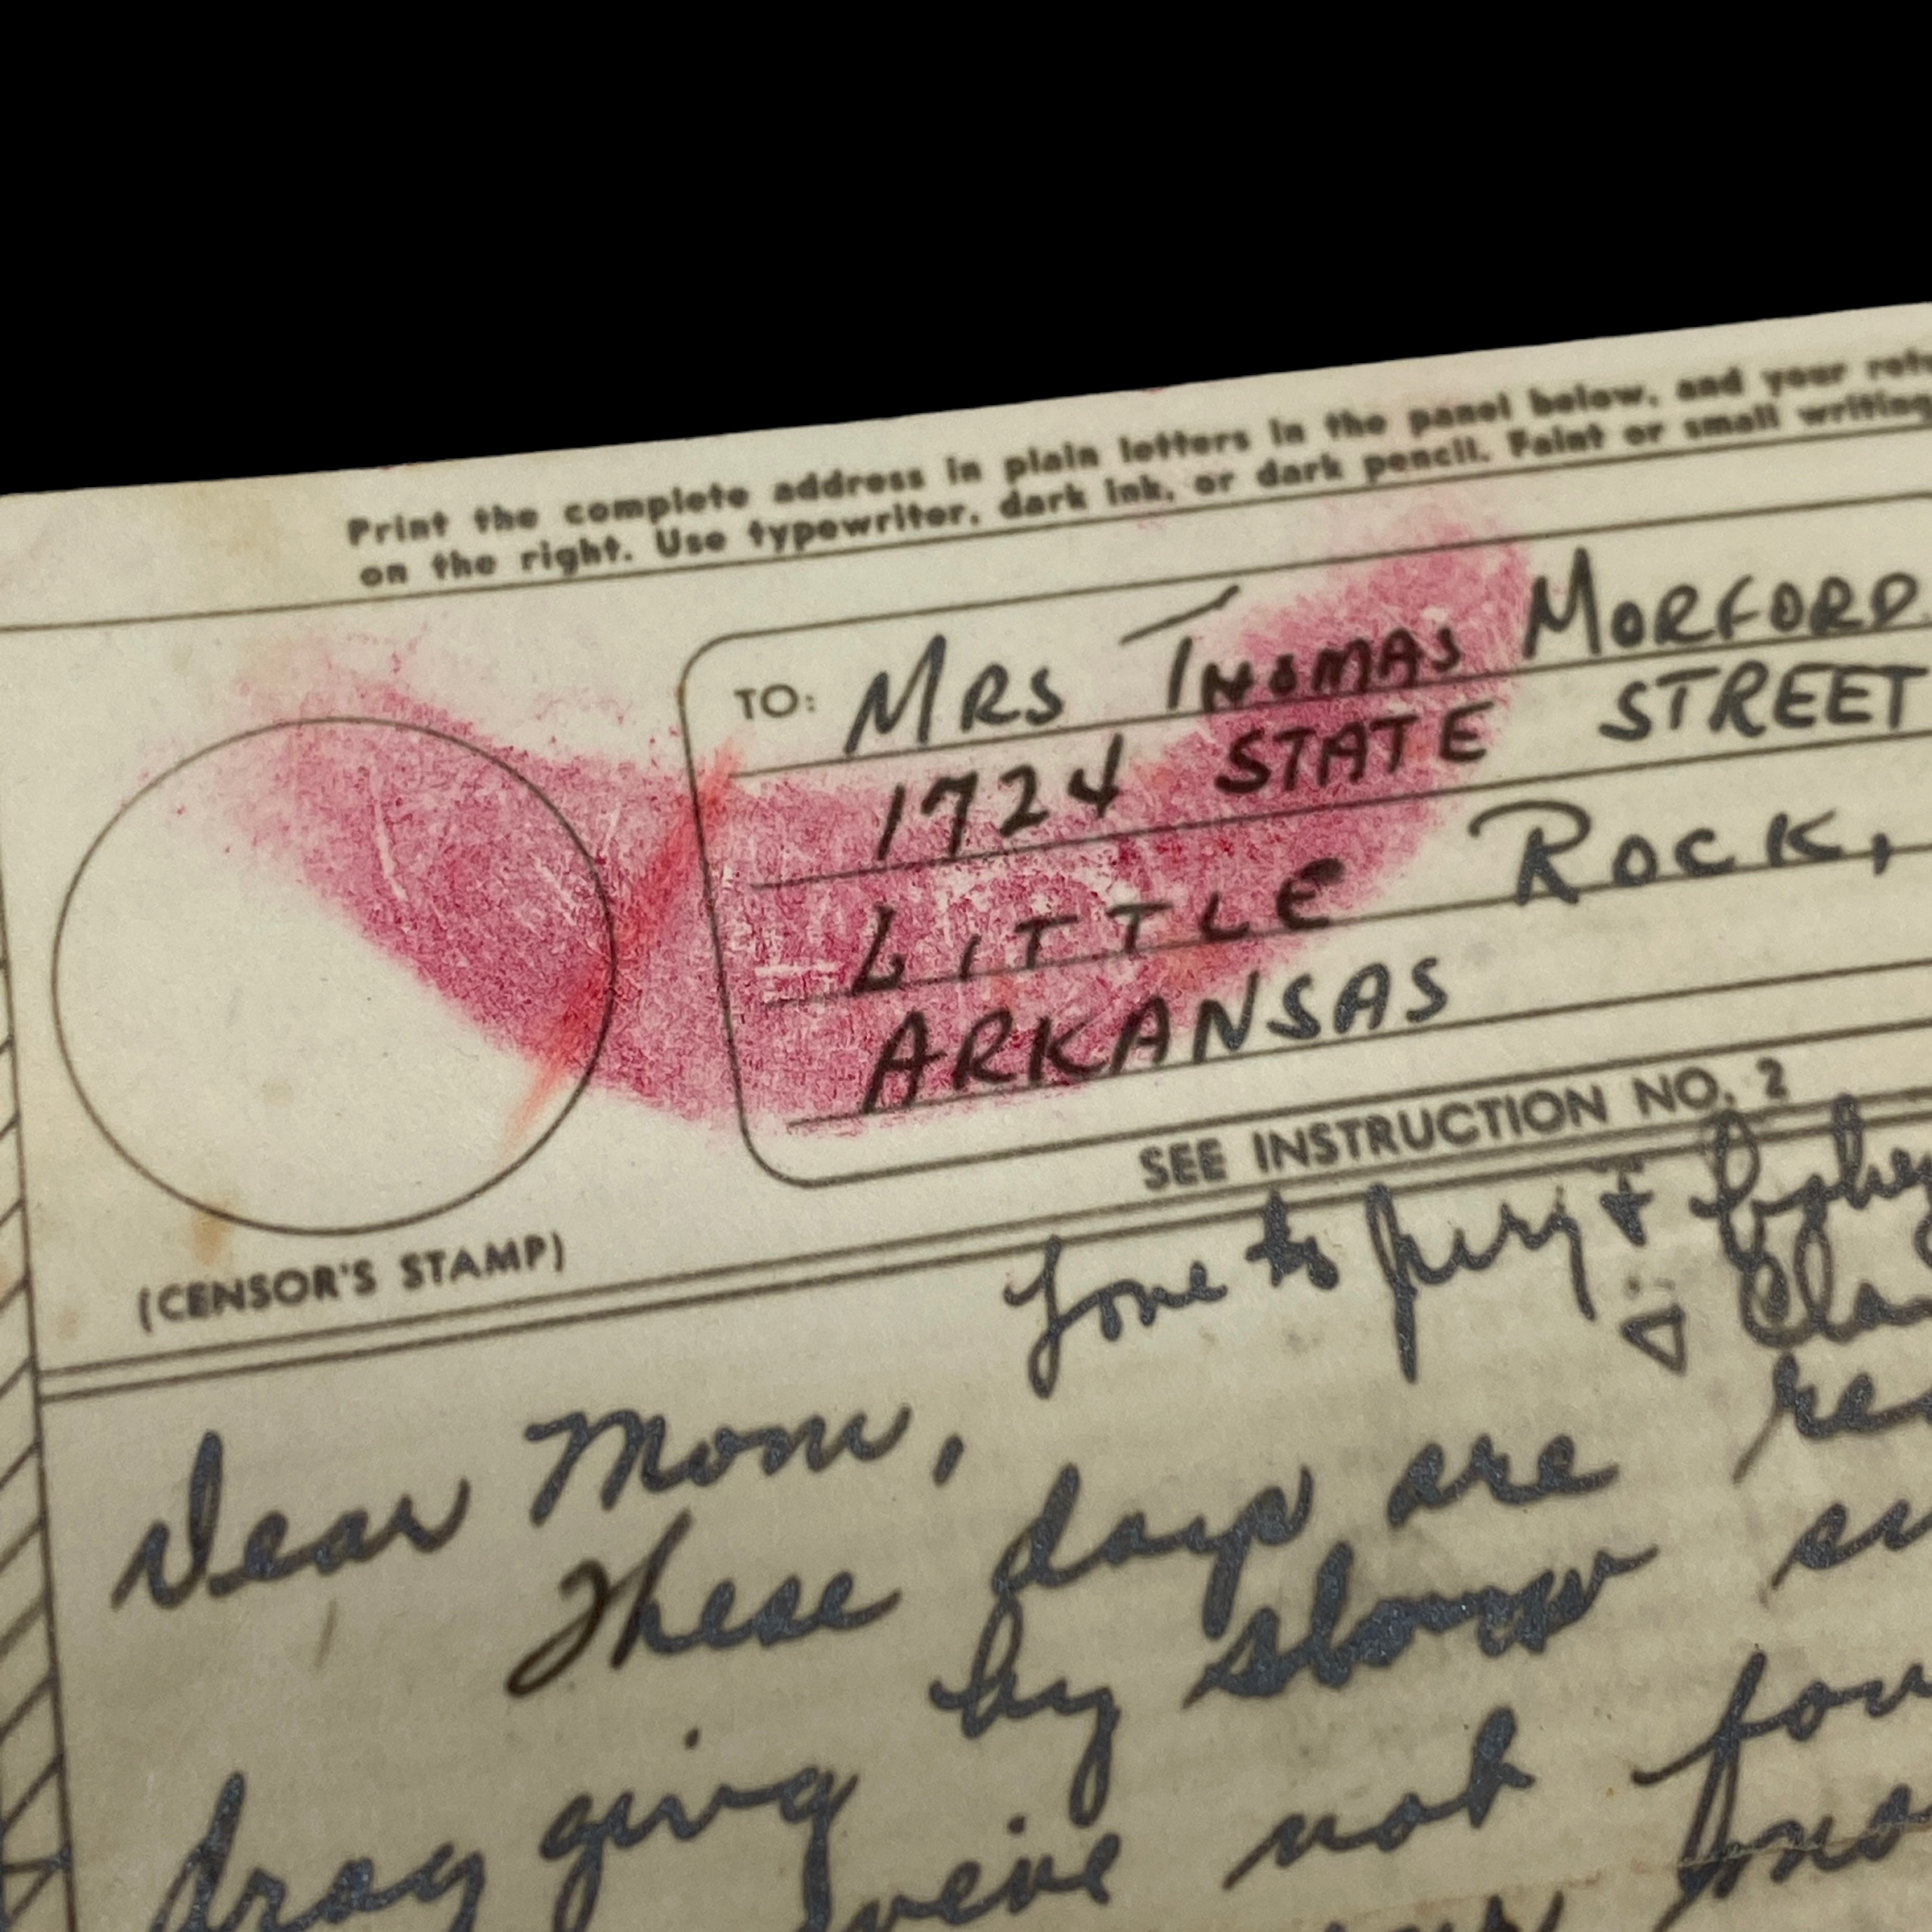 Print the complete address in plain letters in the panel below, and your
on the right. Use typewriter, dark ink, or dark pencil. Faint or small writing
TO: MRS THOMAS MORFORD
1724 STATE STREET
LITTLE ROCK,
ARKANSAS
SEE INSTRUCTION NO. 2
(CENSOR'S STAMP)
Love to &
&
Dear Mom,
These days are
by slow
not